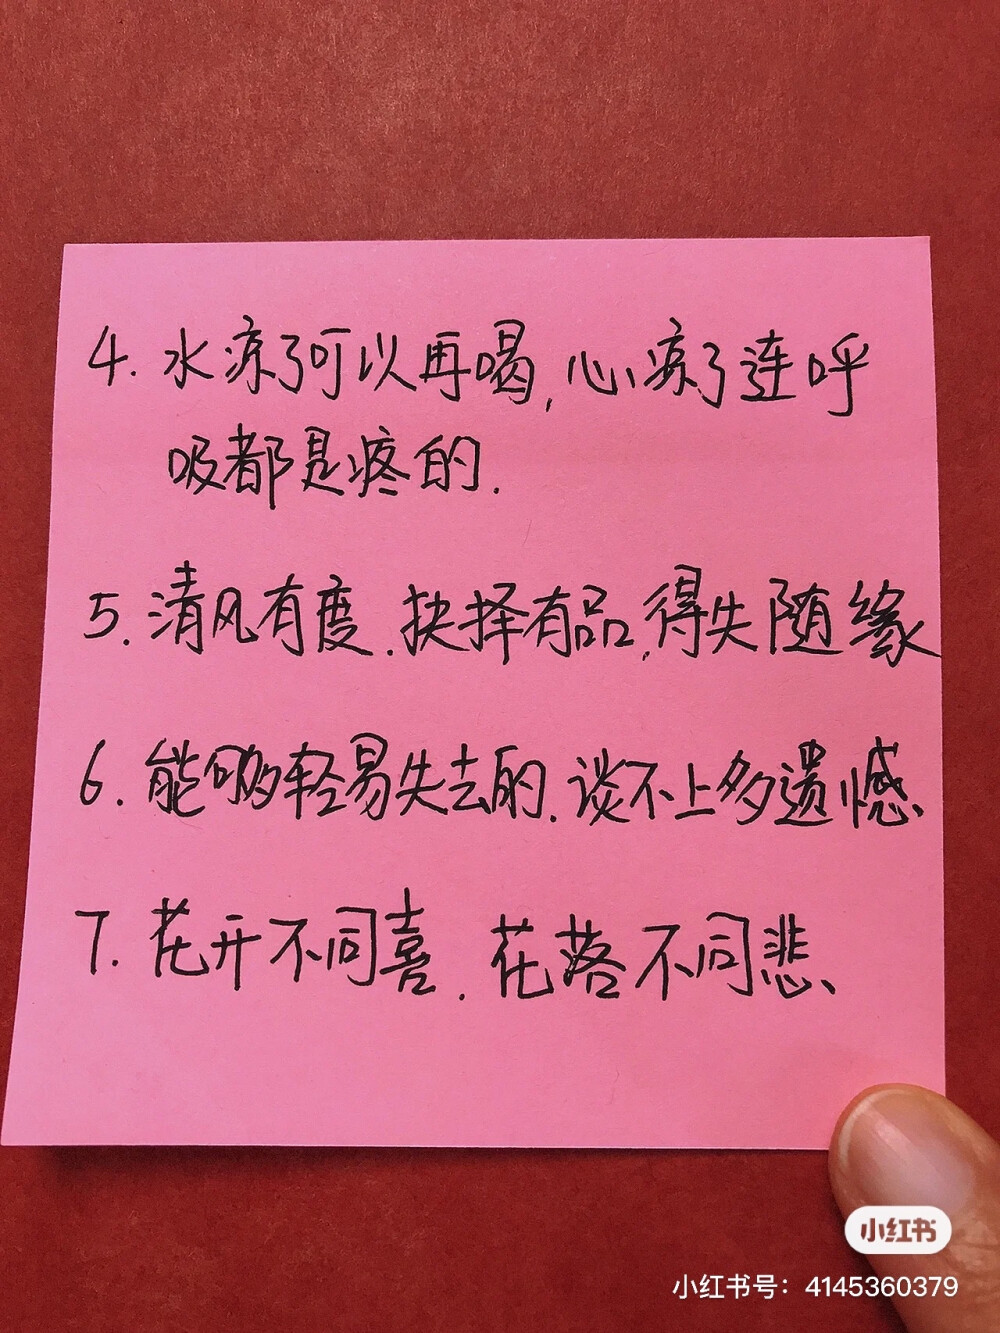 4. 水凉了可以再喝,心凉了连呼
吸都是疼的.
5. 清风有度.抉择有品,得失随缘
6. 能够轻易失去的.谈不上多遗憾、
7. 花开不同喜.花落不同悲、
小红书
小红书号：4145360379